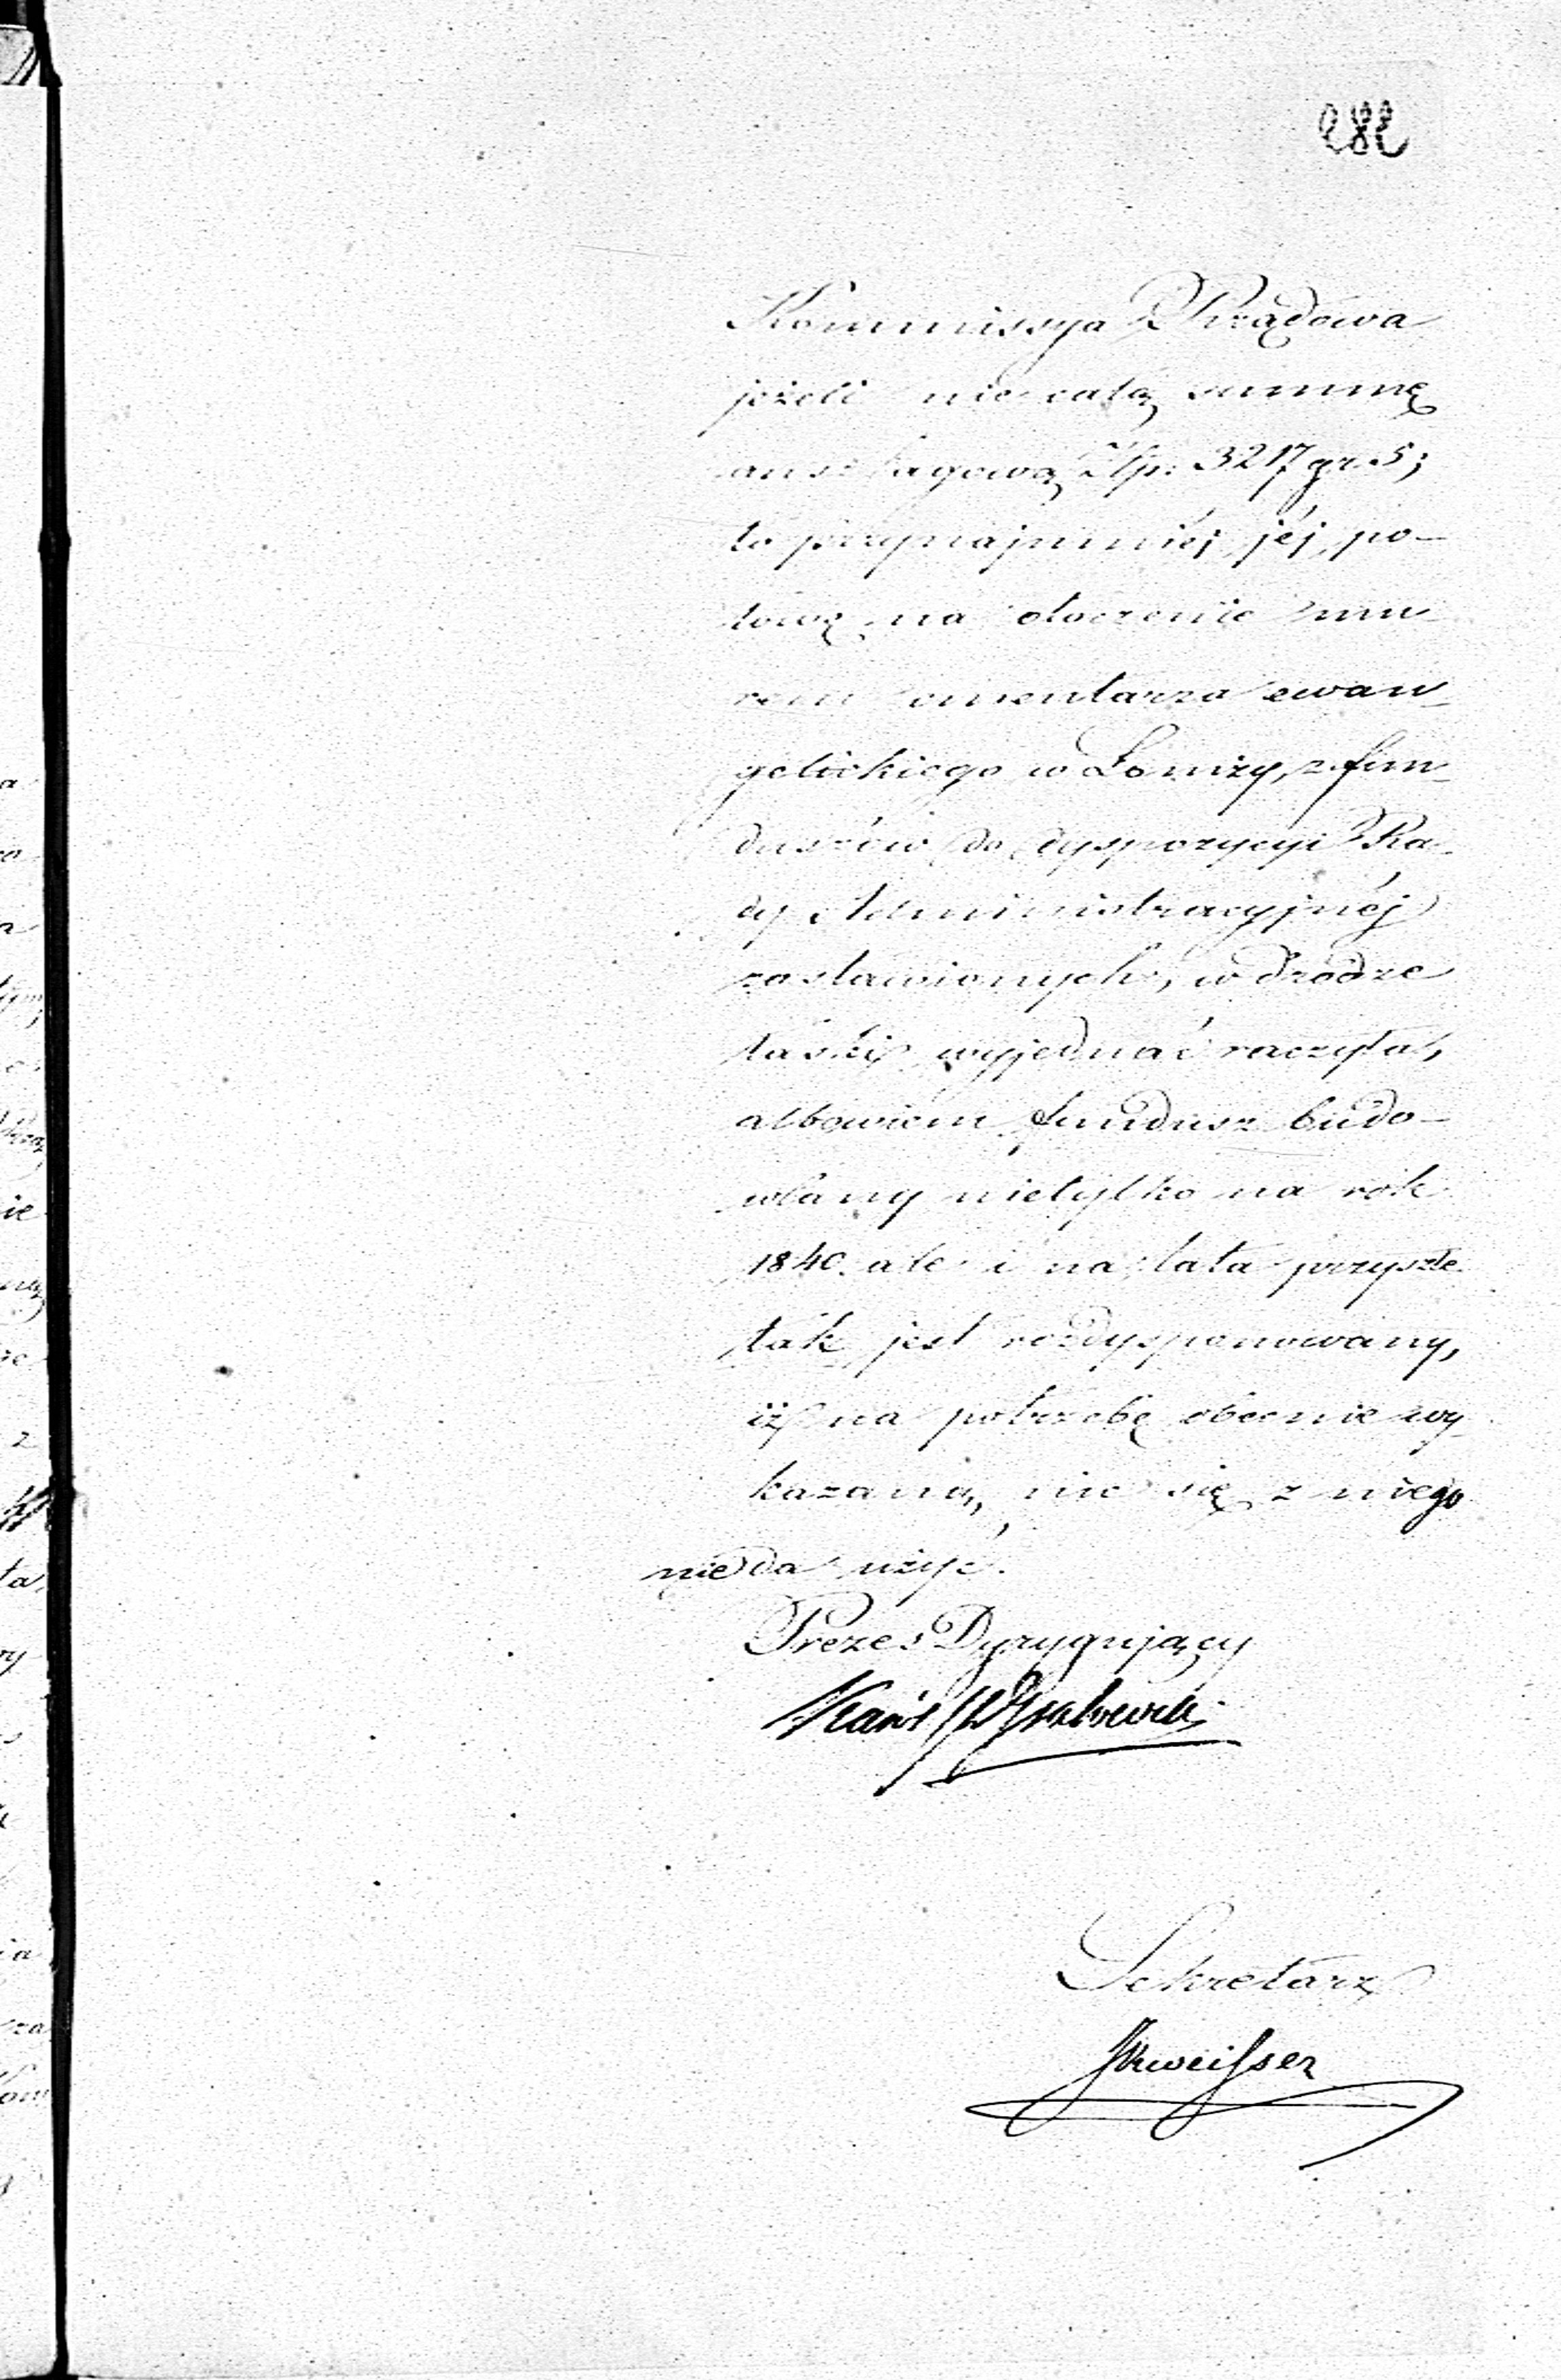 Kommissya Rządowa
jeżeli nie całą summę
anszlagową Złp: 3217 gr. 5;
to przynajmniéj jéj po-
łowę na otoczenie mu-
rem cmentarza ewan-
gelickiego w Łomży, z fun-
duszów do dyspozycyi Ra-
dy Administracyjnéj
zostawionych, w drodze
łaski wyjednać raczyła,
albowiem fundusz budo-
wlany nietylko na rok
1840. ale i na lata przyszłe
tak jest rozdysponowany,
iż na potrzebę obecnie wy-
kazaną, nic się z niego
nie da użyć.
Prezes Dyrygujący
Sekretarz